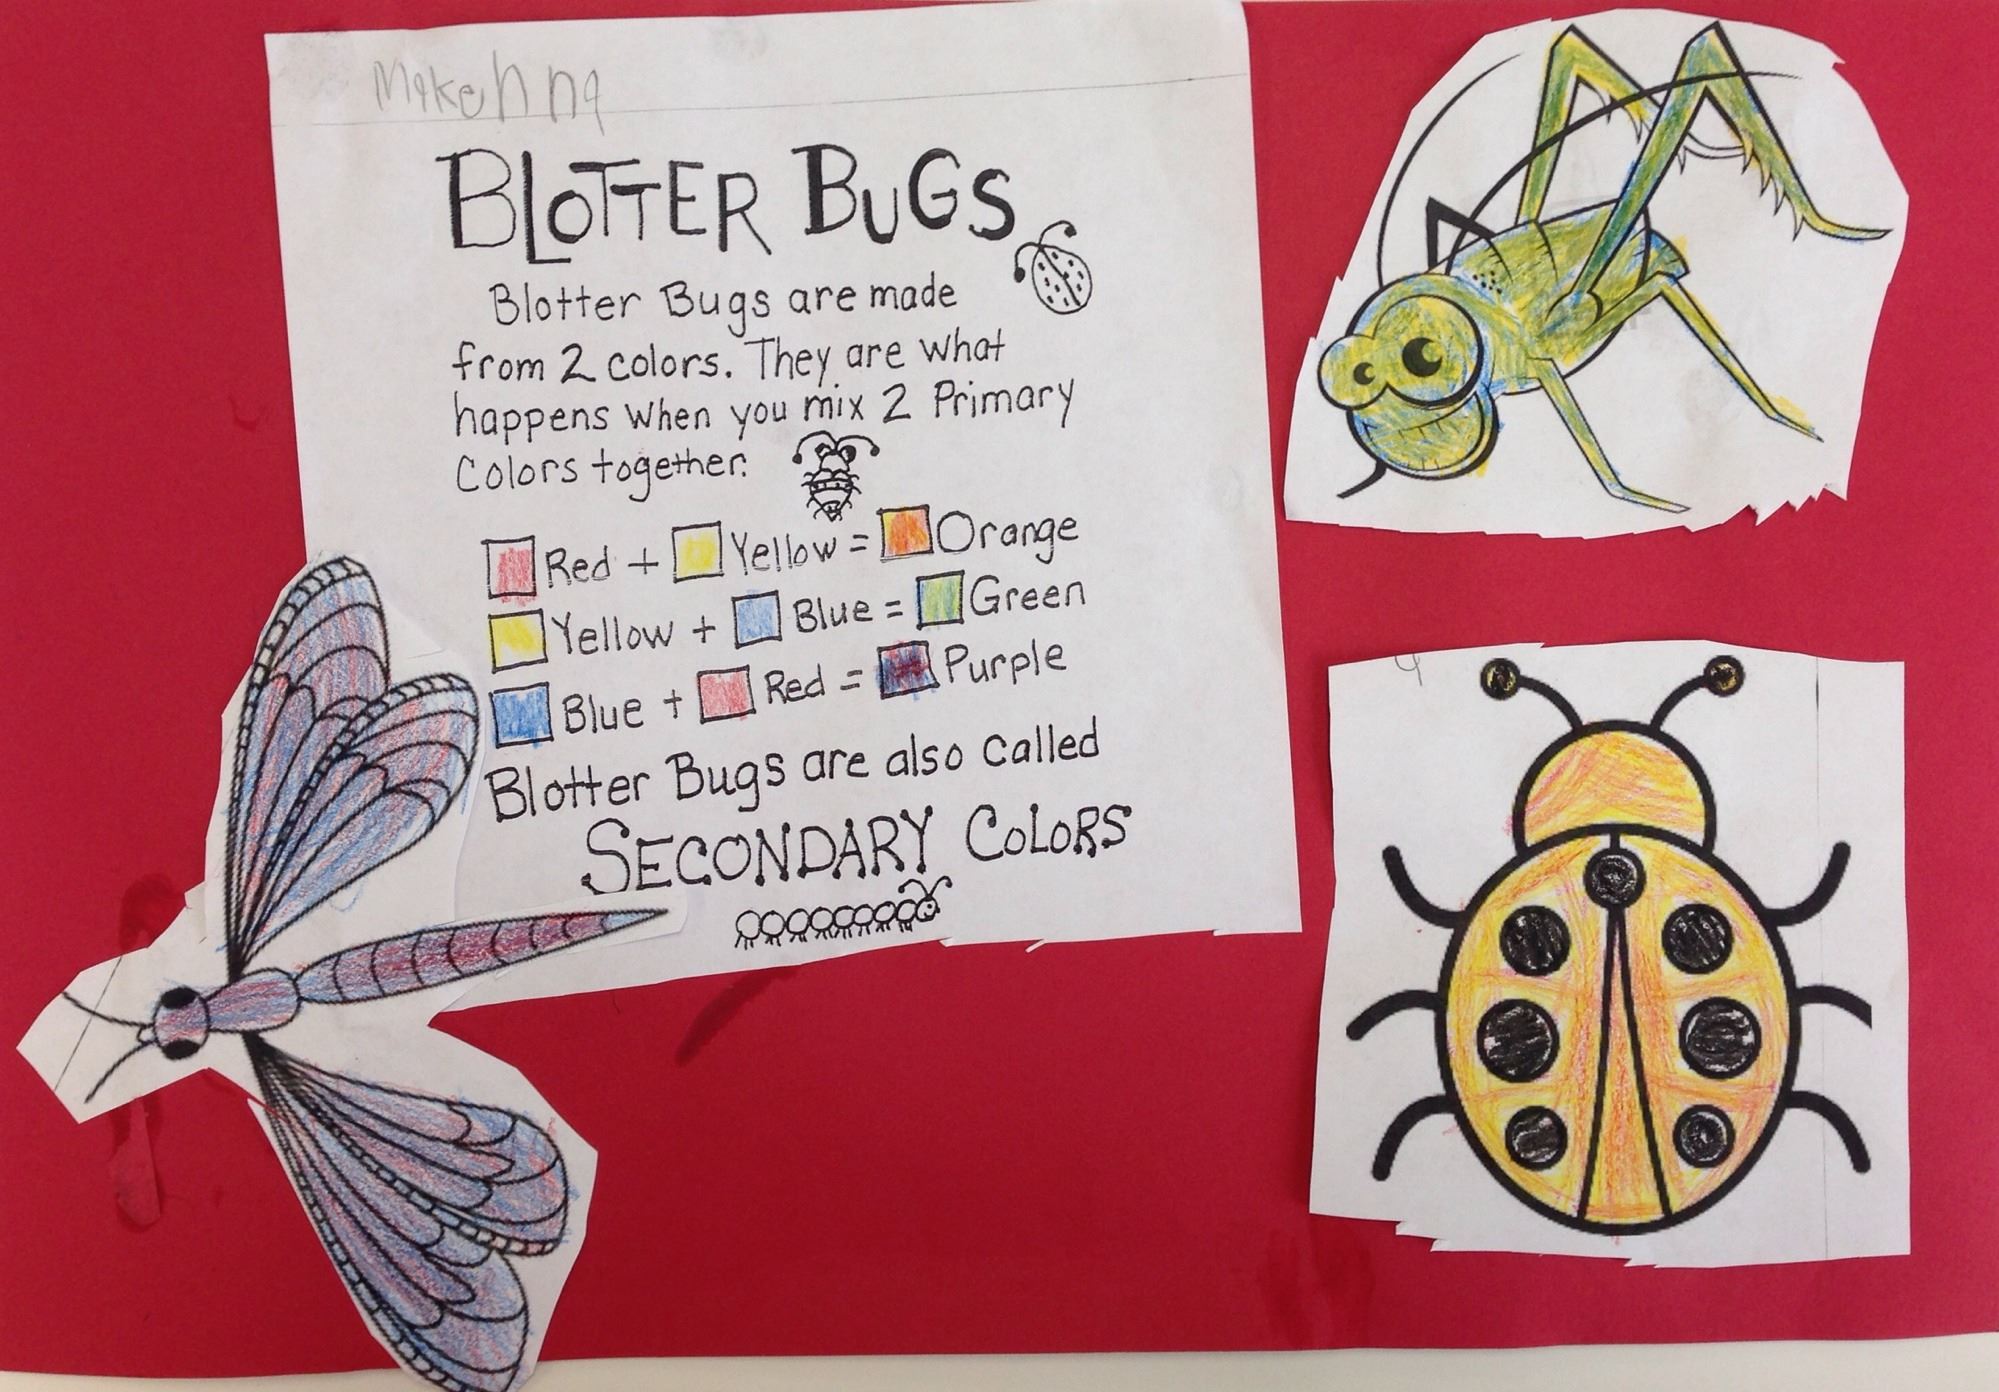 Makenna
BLOTTER BUGS
Blotter Bugs are made
from 2 colors. They are what
happens when you mix 2 Primary
Colors together.
Red + Yellow = Orange
Yellow + Blue = Green
Blue + Red = Purple
Blotter Bugs are also called
SECONDARY COLORS